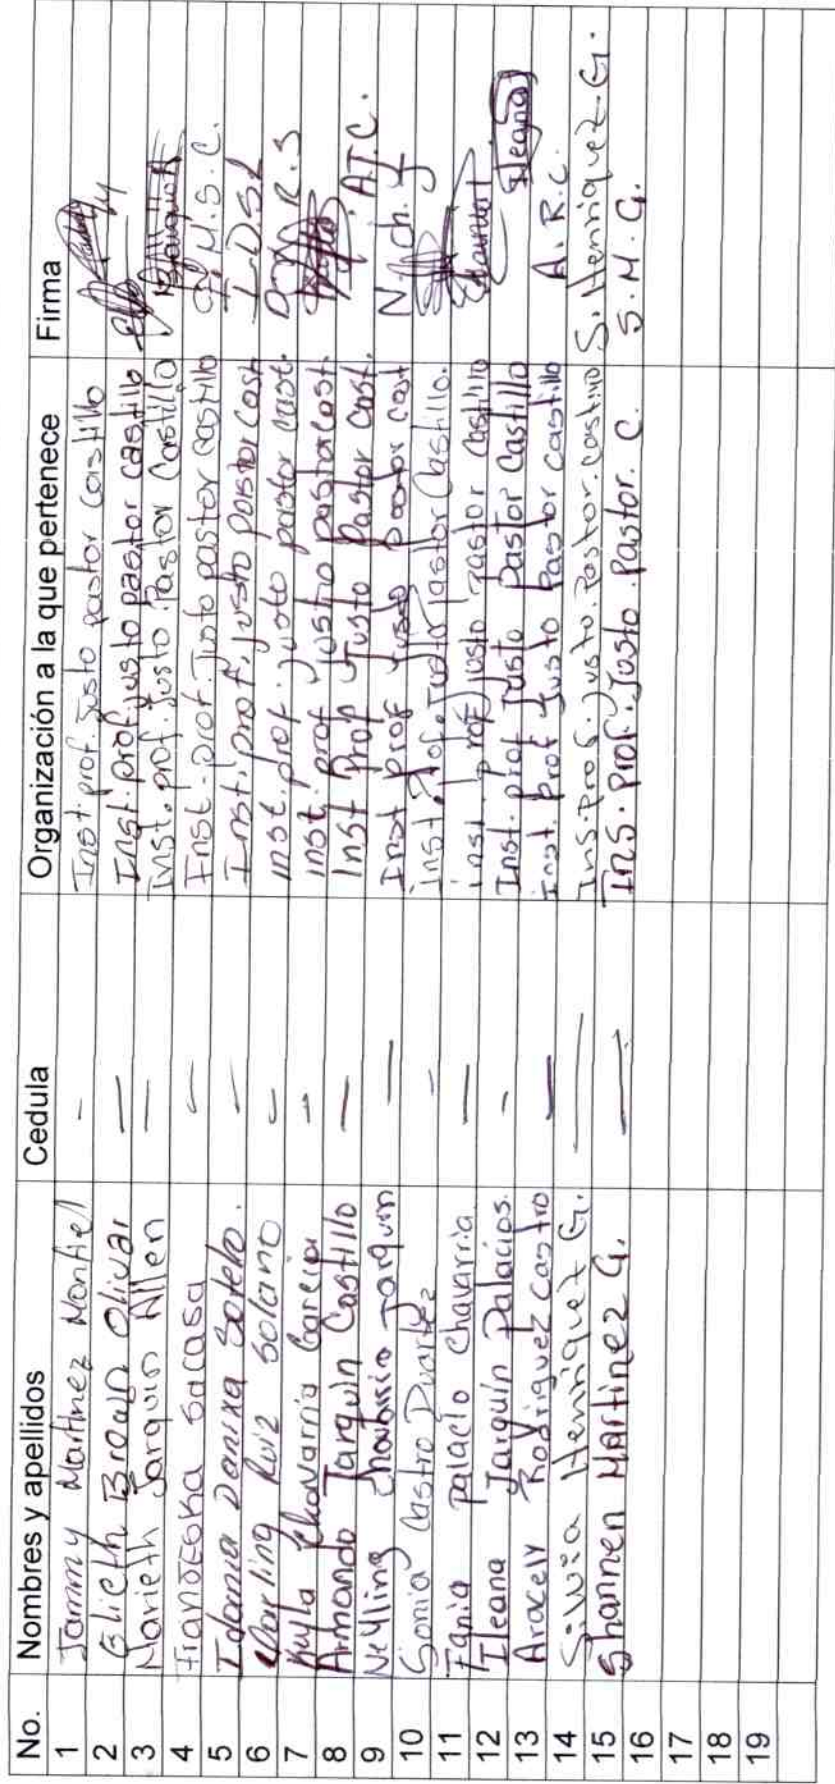 No. Nombres y apellidos Cedula Organización a la que pertenece Firma
1 Jammy Martinez Montiel - Inst. prof. Justo pastor castillo
2 Glieth Brown Olivar — Inst. prof justo pastor castillo
3 Marieth Jarquin Allen — Inst. prof. Justo Pastor Castillo
4 Franceska Sacasa - Inst. prof. Justo pastor castillo F. M. S. C.
5 Idania Danixa Sotelo. - Inst. prof. justo pastor Cast I. D S L
6 Darling Ruiz Solano - inst. prof. justo pastor cast. D. R. S
7 Keyla Chavarria Garcia - inst. prof justo pastor cast.
8 Armando Jarquin Castillo — Inst Prof Justo Pastor cast. A.J.C.
9 Neylling Chavarria Jarquin — Inst prof Justo Pastor cast N. ch. J
10 Sonia Castro Duartez - inst. Profe Justo Pastor Castillo.
11 Tania palacio Chavarria — inst. prof justo Pastor Castillo
12 Ileana Jarquin Palacios. - Inst. prof Justo Pastor Castillo Ileana
13 Aracely Rodriguez castro — Inst. prof Justo Pastor castillo A. R. C.
14 Silvia Henriquez G. — Ins. Prof. Justo. Pastor. Castillo S. Henriquez. G.
15 Shannen Martinez G. — Ins. Prof. Justo. Pastor. C. S. M. G.
16
17
18
19